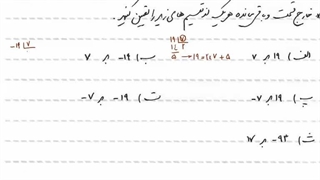 خارج قسمت و باقی مانده هر یک از تقسیم های زیر را تعیین کنید.
الف) ۱۹ بر ۷
۱۹ = ۲×۷ + ۵
ب) ۱۹- بر ۷
-۱۹ ۷
پ) ۱۹ بر ۷-
ت) ۱۹- بر ۷-
ث) ۹۳- بر ۱۷